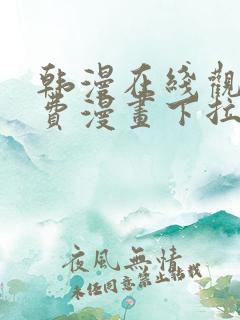 韩漫在线觀
费漫畫下拉
夜風無情
未经同意禁止转载